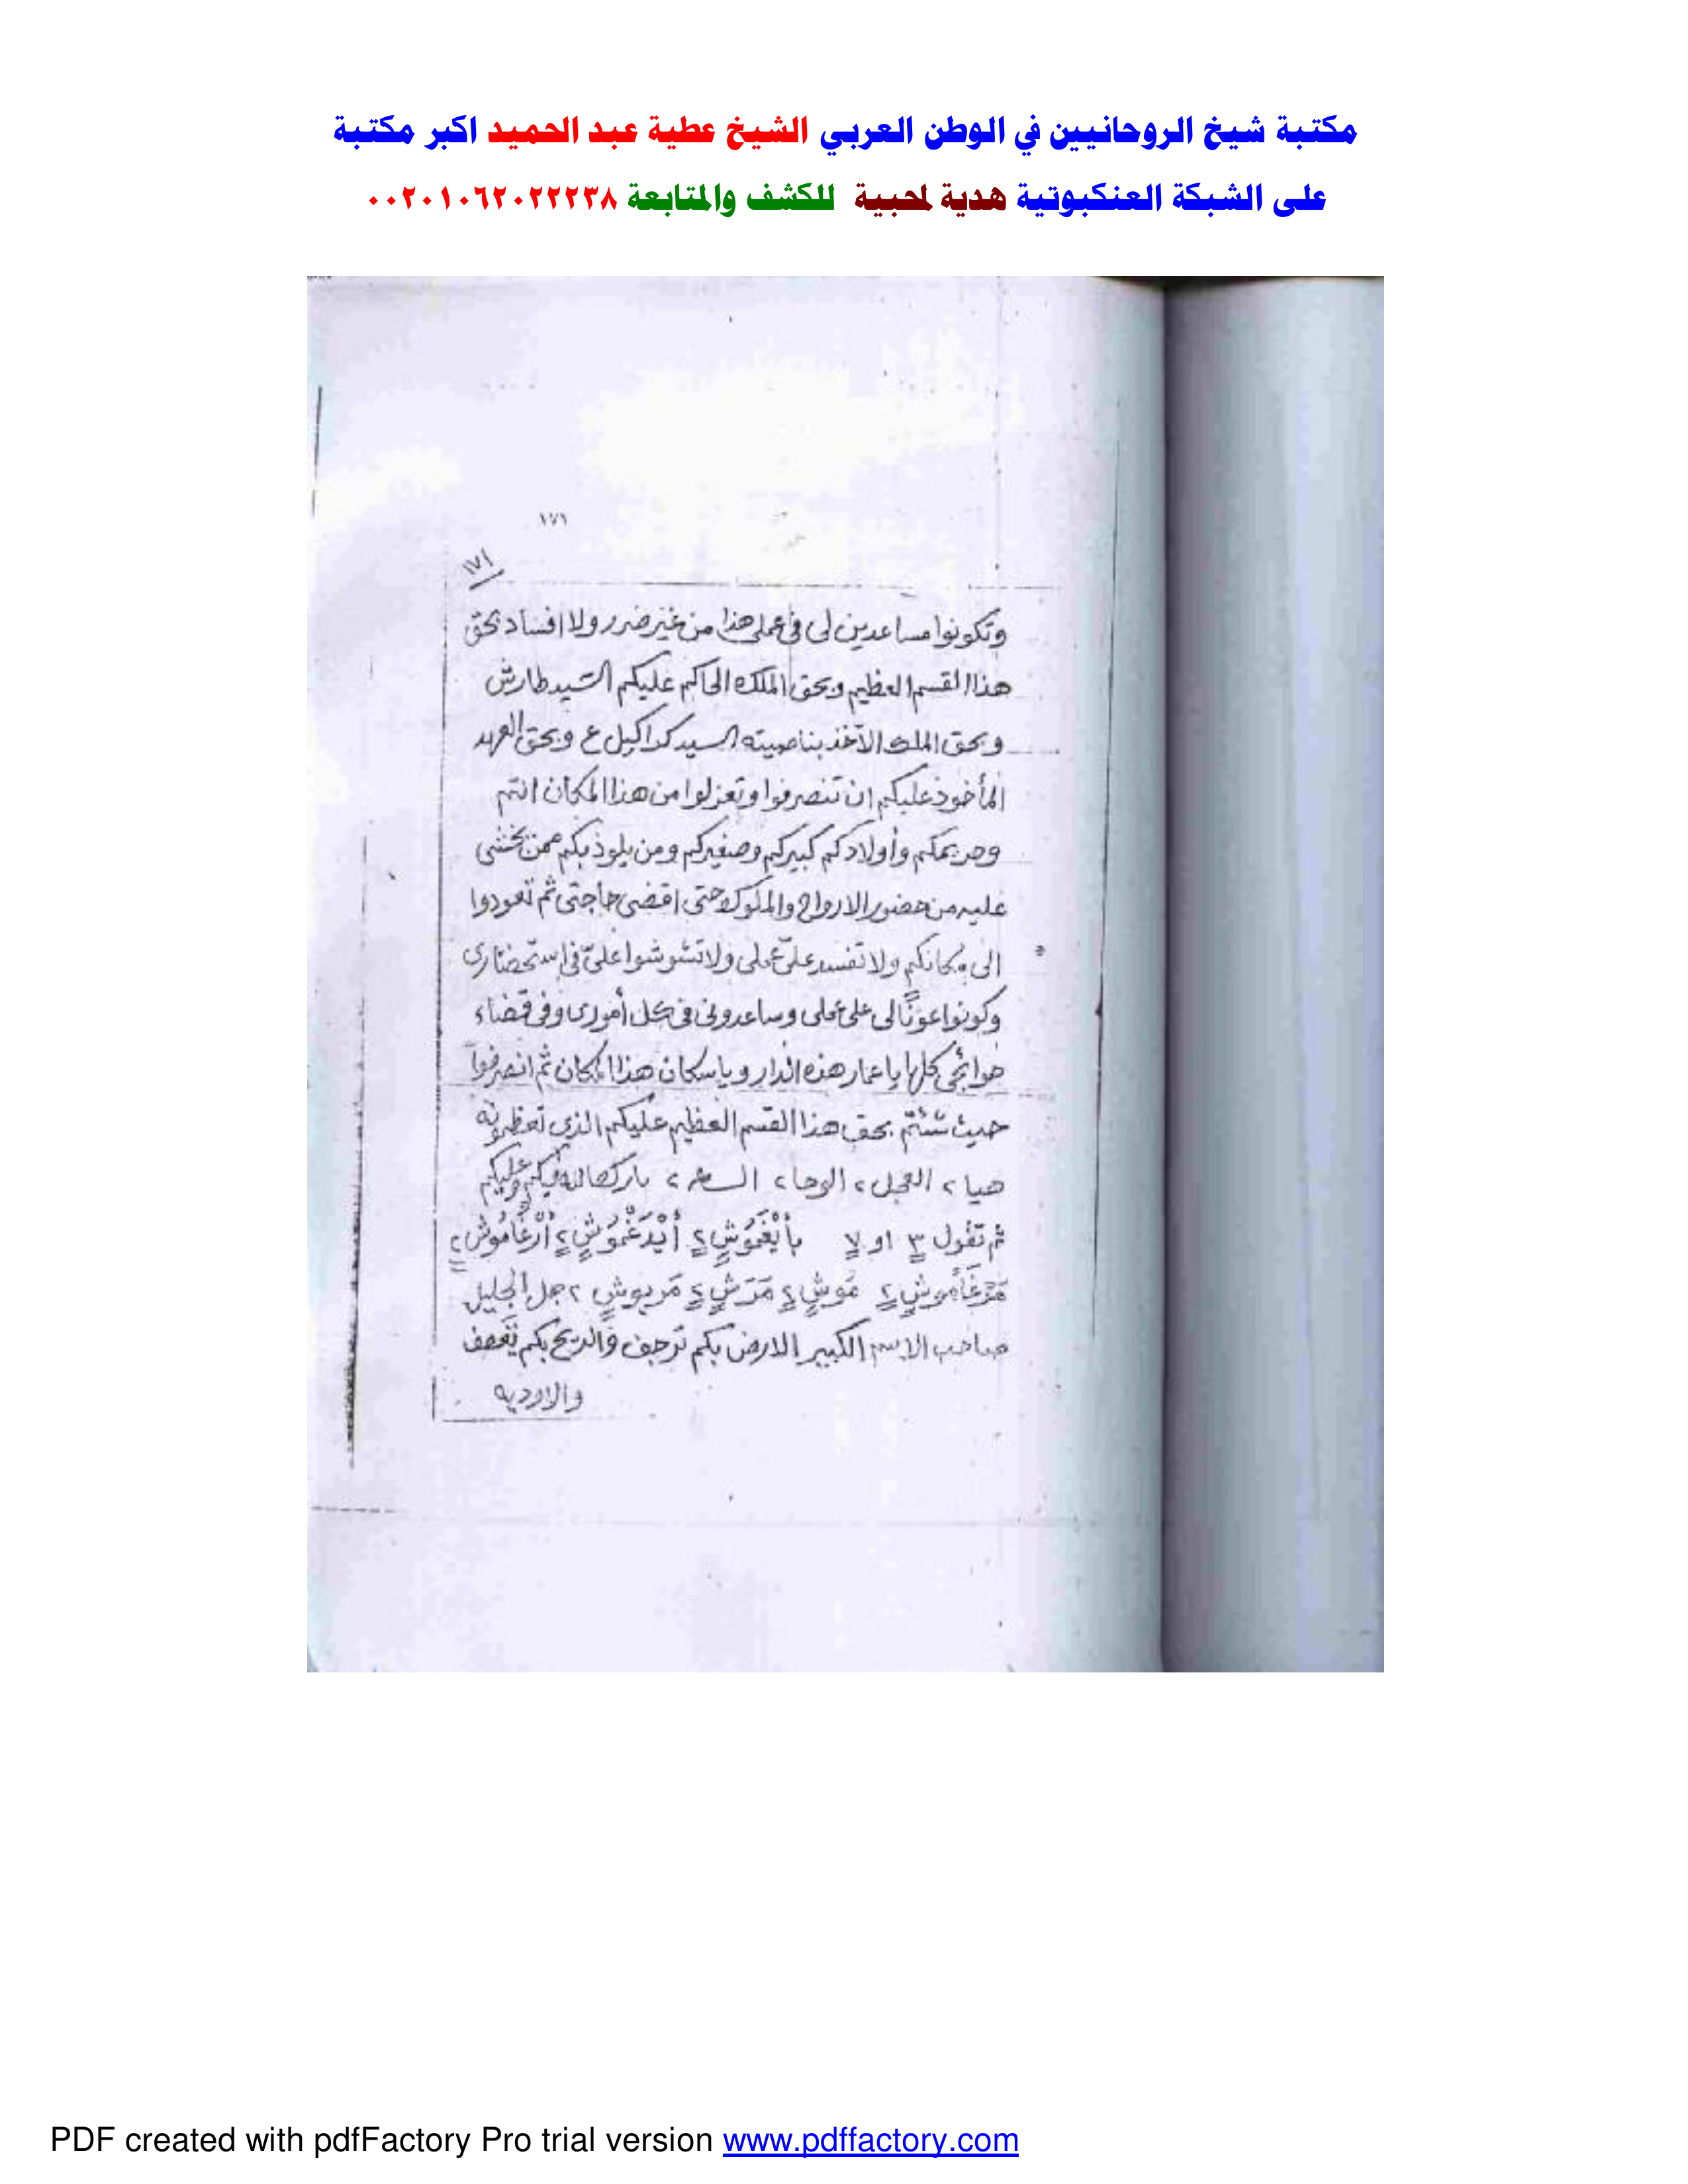 مكتبة شيخ الروحانيين في الوطن العربي الشيخ عطية عبد الحميد اكبر مكتبة
على الشبكة العنكبوتية هدية لمحبية للكشف والمتابعة ٠٠٢٠١٠٦٢٠٢٢٢٣٨
١٧١
١٧١
وتكونوا مساعدين لى فى عملى هذا من غير ضرر ولا افساد بحق
هذا القسم العظيم وبحق الملك الحاكم عليكم السيد طارش
وبحق الملك الآخذ بناصيته السيد كداكيل ع وبحق العهد
المأخوذ عليكم ان تنصرفوا وتعزلوا من هذا المكان انتم
وحريمكم وأولادكم كبيركم وصغيركم ومن يلوذ بكم ممن يخشى
عليه من حضور الارواح والملوك حتى اقضى حاجتى ثم تعودوا
الى مكانكم ولا تفسد علىّ عملى ولا تشوشوا علىّ فى استحضارى
وكونوا عونًا لى على عملى وساعدونى فى كل أمورى وفى قضاء
حوائجى كلها يا عمار هذه الدار ويا سكان هذا المكان ثم انصرفوا
حيث شئتم بحق هذا القسم العظيم عليكم الذى تعظمونه
هيا ٢ العجل ٢ الوحا ٢ الساعة ٢ بارك الله فيكم وعليكم
ثم تقول ٣ او ٧ بأَيْغَمُوشٍ ٢ أَيْدَغْمُوشٍ ٢ أَرْغَامُوشٍ ٢
مَرْغَامُوشٍ ٢ مَوشٍ ٢ مَرَشٍ ٢ مَربوشٍ ٢ جل الجليل
صاحب الاسم الكبير الارض بكم ترجف والريح بكم تعصف
والاوديه
PDF created with pdfFactory Pro trial version www.pdffactory.com